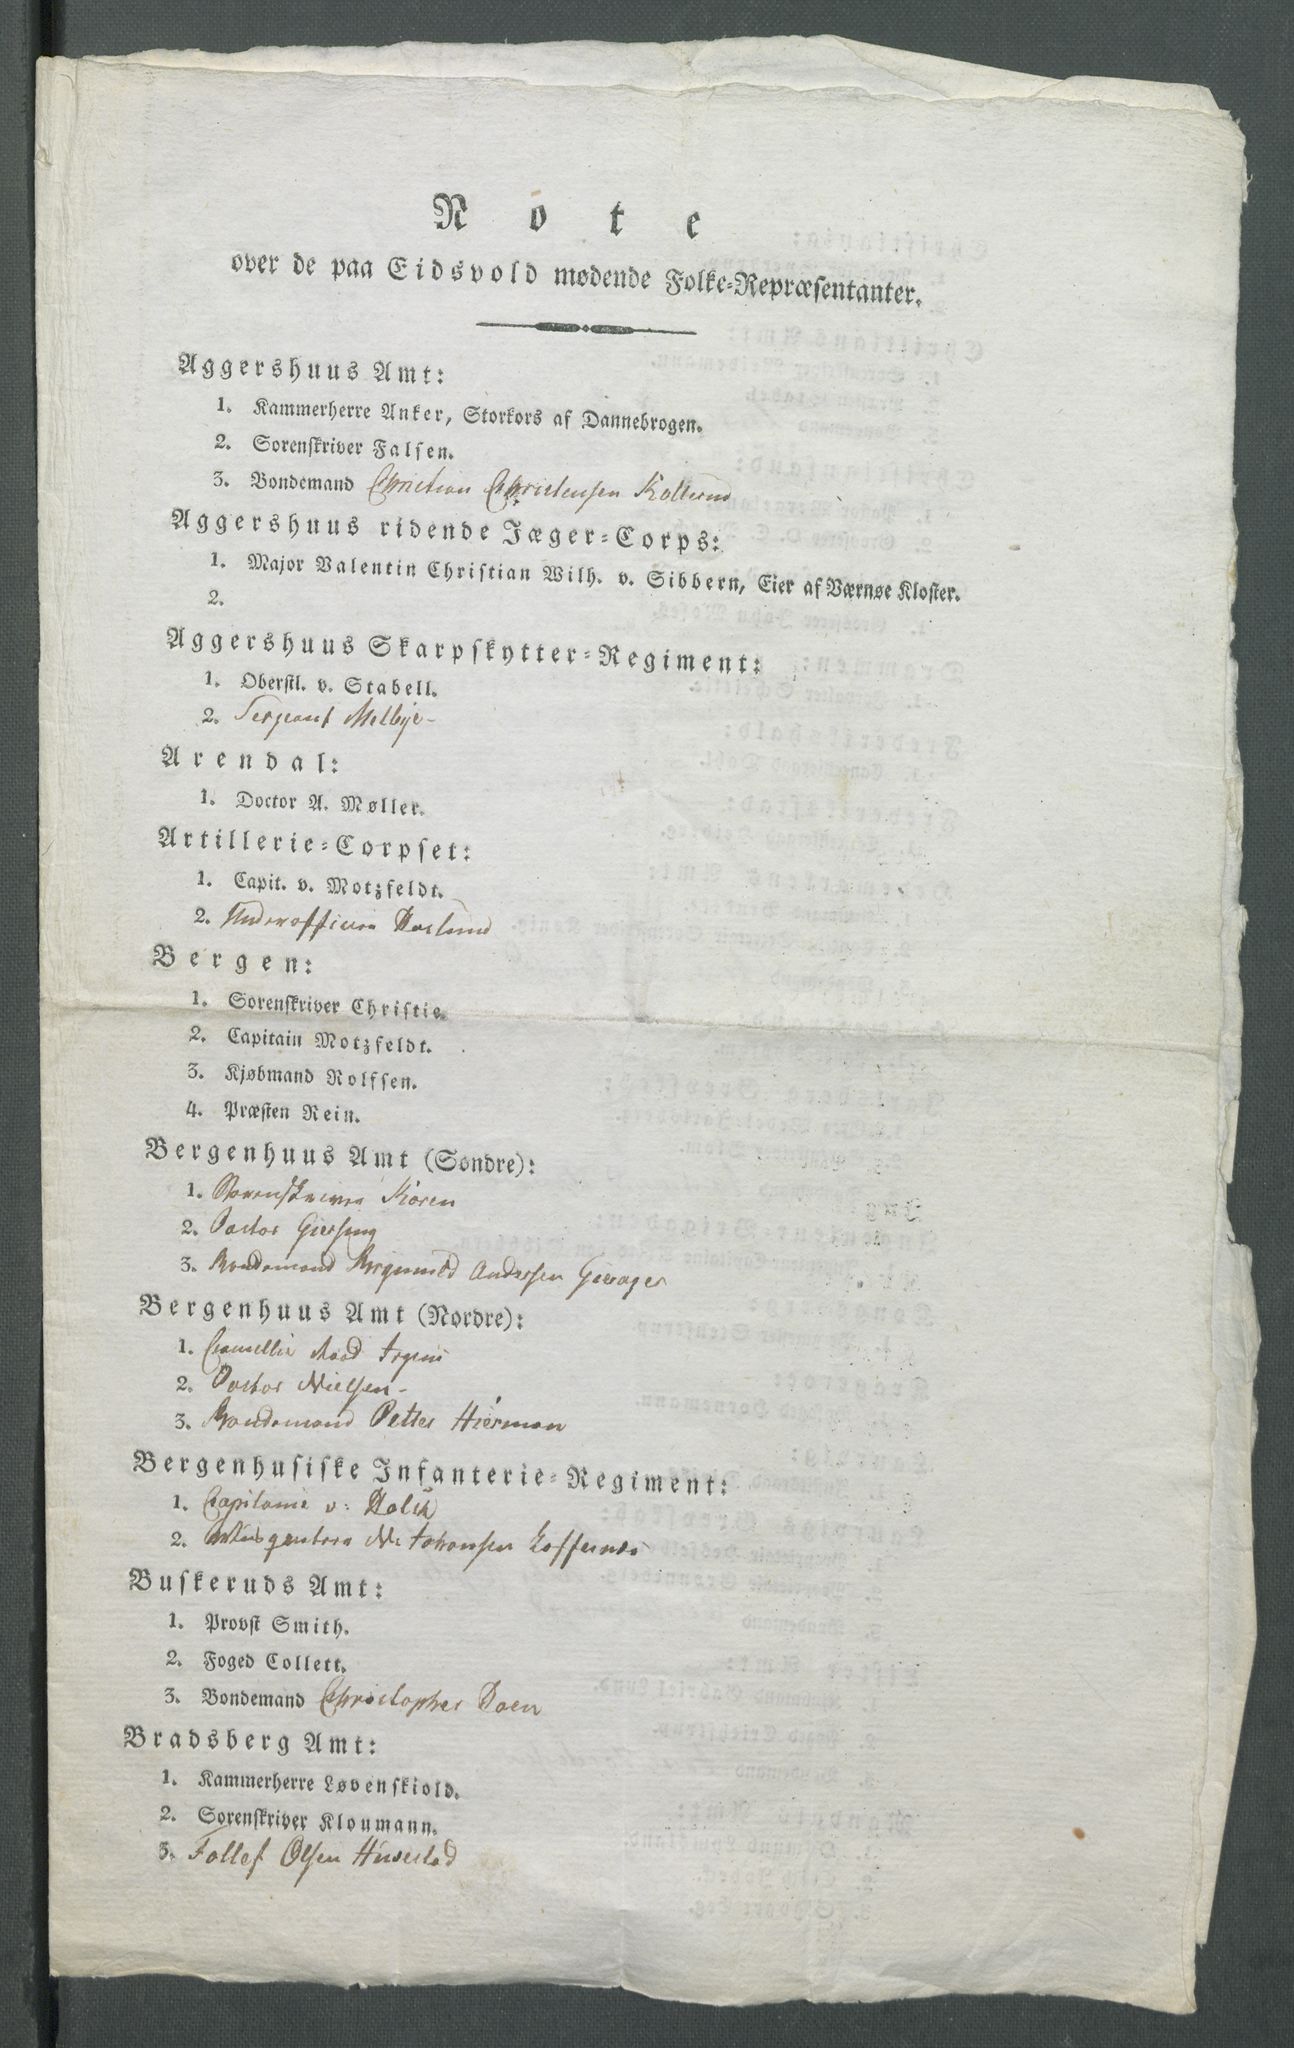 Note
over de paa Eidsvold mødende Folke-Repræsentanter.
Aggershuus Amt:
1. Kammerherre Anker, Storkors af Dannebrogen.
2. Sorenskriver Falsen.
3. Bondemand Christian Christensen Kollerud
Aggershuus ridende Jæger-Corps:
1. Major Valentin Christian Wilh. v. Sibbern, Eier af Værnøe Kloster.
2.
Aggershuus Skarpskytter-Regiment:
1. Oberstl. v. Stabell.
2. Sergeant Melbye-
Arendal:
1. Doctor A. Møller.
Artillerie-Corpset:
1. Capit. v. Motzfeldt.
2. Underofficeer Haslund
Bergen:
1. Sorenskriver Christie.
2. Capitain Motzfeldt.
3. Kjøbmand Rolfsen.
4. Præsten Rein.
Bergenhuus Amt (Søndre):
1. Sorenskriver Koren
2. Pastor Giersing
3. Bondemand Brynnild Andersen Gierager
Bergenhuus Amt (Nordre):
1. Irgens
2. Pastor Nielsen-
3. Bondemand Petter Hierman
Bergenhusiske Infanterie-Regiment:
1. Capitaine v: Holck
2. Johansen Loffernæs
Buskeruds Amt:
1. Provst Smith.
2. Foged Collett.
3. Bondemand Christopher Hoen
Bradsberg Amt:
1. Kammerherre Løvenskiold.
2. Sorenskriver Kloumann.
3. Tollef Olsen Huvestad